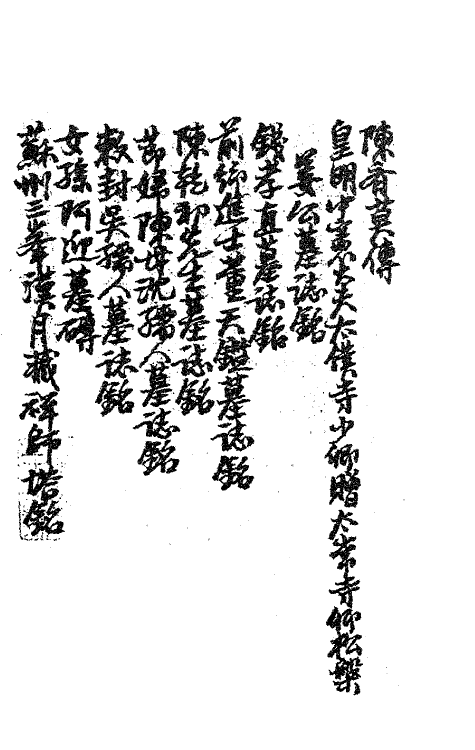 陳齊莫傳
皇明中憲大夫太僕寺少卿贈太常寺卿松槃
姜公墓誌銘
錢孝直墓誌銘
前鄉進士董天鑑墓誌銘
陳乾初先生墓誌銘
節婦陳母沈孺人墓誌銘
敕封吳孺人墓誌銘
女孫阿迎墓磚
蘇州三峯漢月藏禪師塔銘